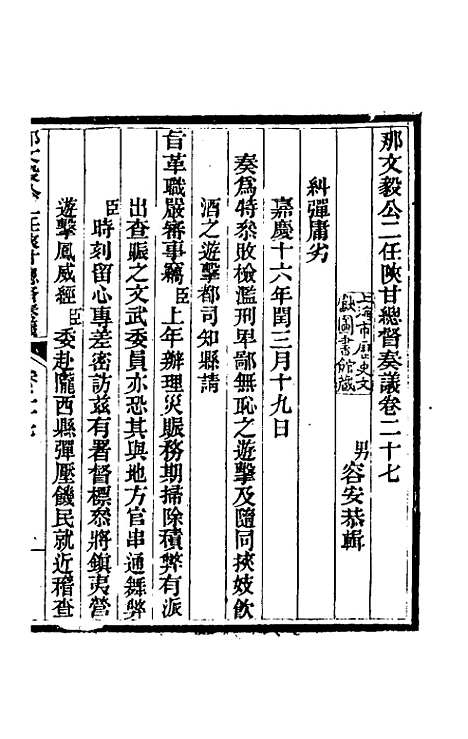 那文毅公二任陝甘總督奏議卷二十七
上海市歷史文
獻圖書館藏
男容安恭輯
糾彈庸劣
嘉慶十六年閏三月十九日
奏爲特叅敗檢濫刑卑鄙無恥之遊擊及隨同挾妓飲
酒之遊擊都司知縣請
旨革職嚴審事竊臣上年辦理災賑務期掃除積弊有派
出查賑之文武委員亦恐其與地方官串通舞弊
臣時刻留心專差密訪兹有署督標叅將鎮夷營
遊擊鳳威經臣委赴隴西縣彈壓饑民就近稽查